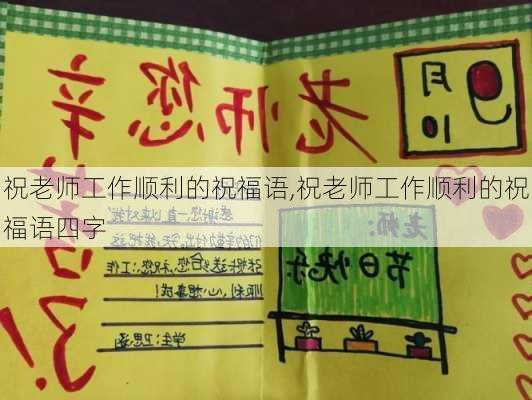 老师您辛
苦了!
9月10
祝老师工作顺利的祝福语,祝老师工作顺利的祝
福语四字
老师:
节日快乐
感谢您一直以来对我
送给您,祝您:工作
顺利,心想事成!
学生:卫思涵